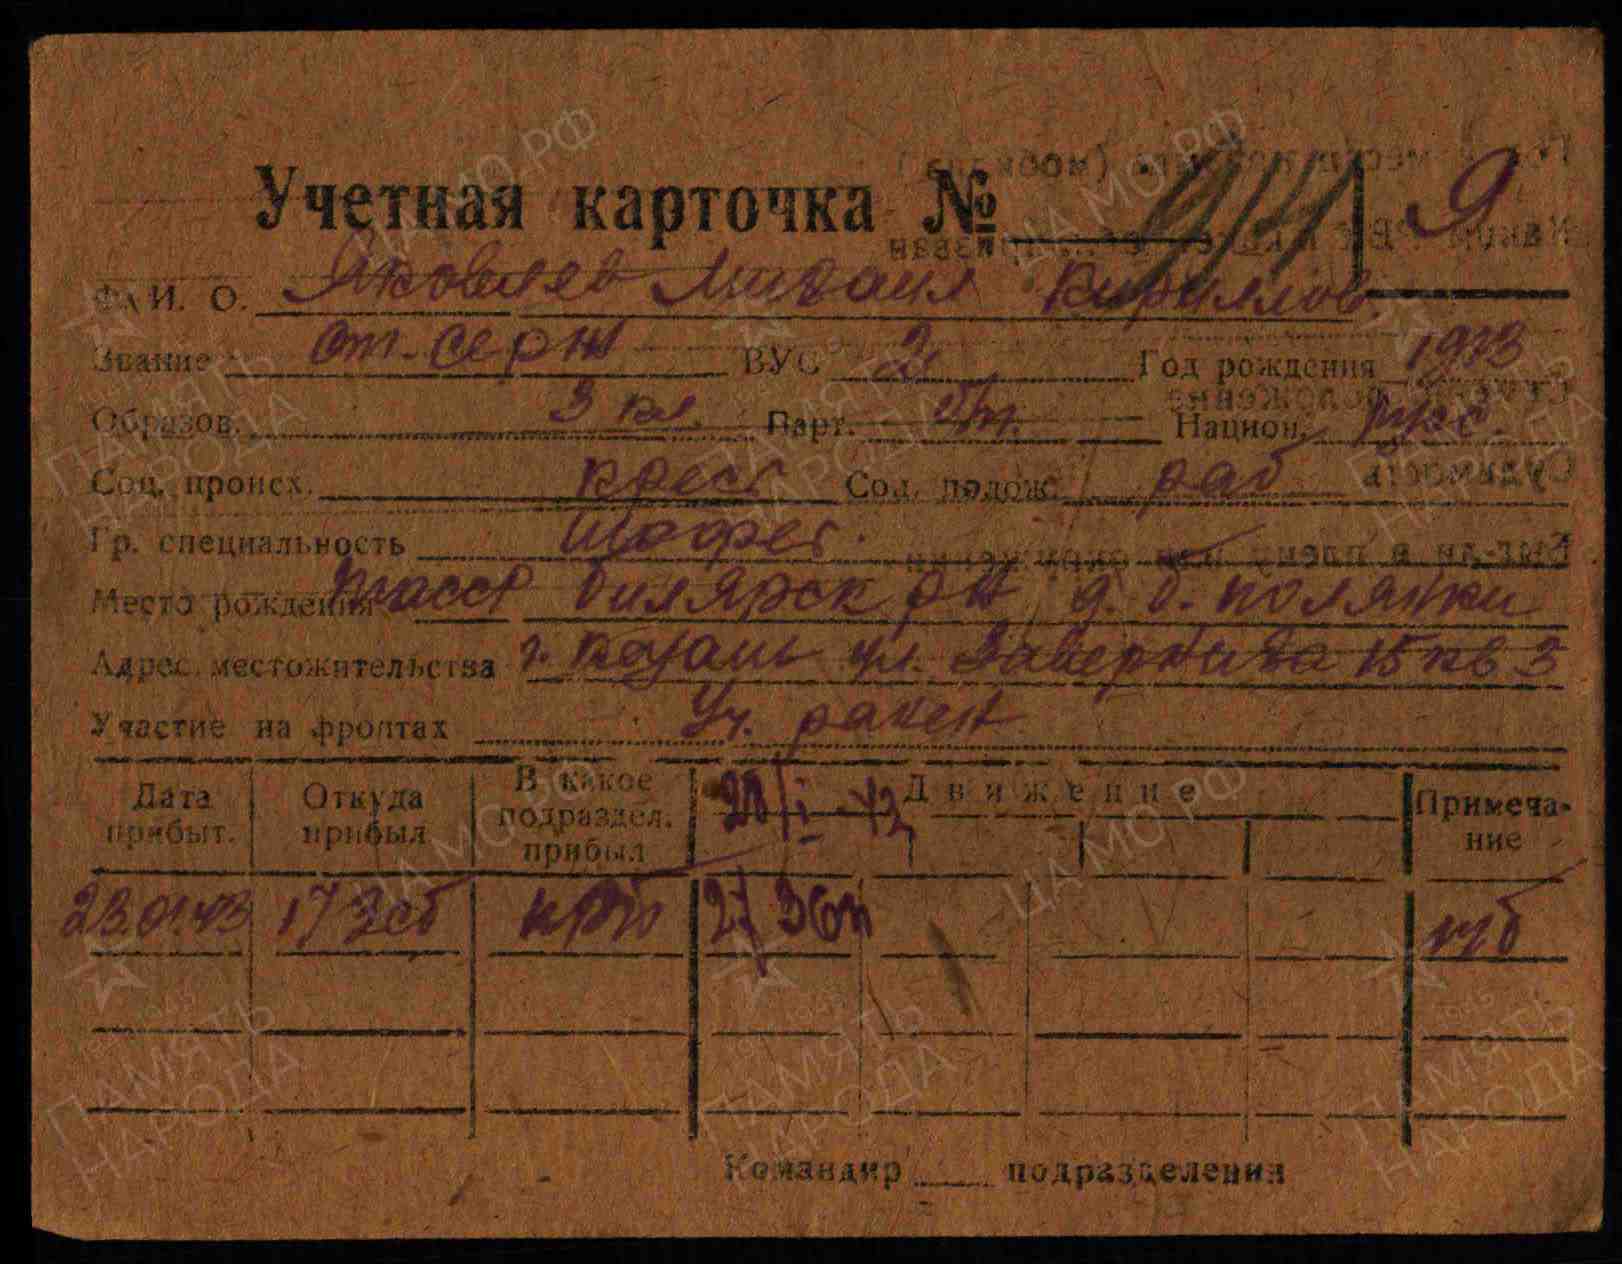 Учетная карточка № Я
Ф. И. О. Яковлев Михаил Кириллов.
Звание ст. серж ВУС 2 Год рождения 1913
Образов. 3 кл. Парт. б/п. Национ. рус.
Соц. происх. крест Соц. полож. раб
Гр. специальность шофер.
Место рождения ТАССР Билярск рн д. б. полянки
Адрес местожительства г. Казань ул. 15 кв 3
Участие на фронтах Уч. ранен
Дата прибыт. Откуда прибыл В какое подраздел. прибыл Движение Примечание
23.01.43 17 зсб 27 Зсп
Командир подразделения
ЦА МО РФ
ПАМЯТЬ НАРОДА